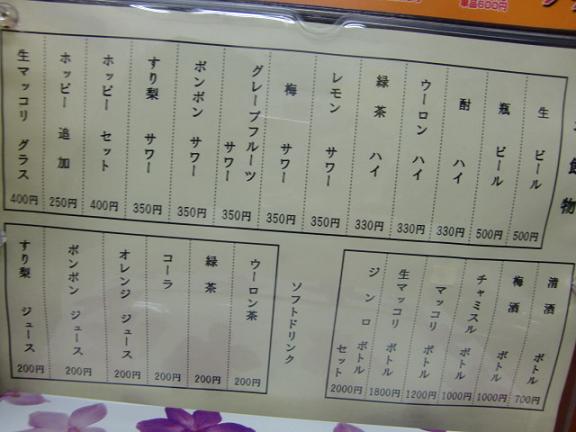 単品600円
飲物
生 ビール 500円
瓶 ビール 500円
酎 ハイ 330円
ウーロン ハイ 330円
緑茶 ハイ 330円
レモン サワー 350円
梅 サワー 350円
グレープフルーツ サワー 350円
ボンボン サワー 350円
すり梨 サワー 350円
ホッピー セット 400円
ホッピー 追加 250円
生マッコリ グラス 400円
清酒 ボトル 700円
梅酒 ボトル 1000円
チャミスル ボトル 1000円
マッコリ ボトル 1200円
生マッコリ ボトル 1800円
ジンロ ボトル セット 2000円
ソフトドリンク
ウーロン茶 200円
緑茶 200円
コーラ 200円
オレンジ ジュース 200円
ボンボン ジュース 200円
すり梨 ジュース 200円